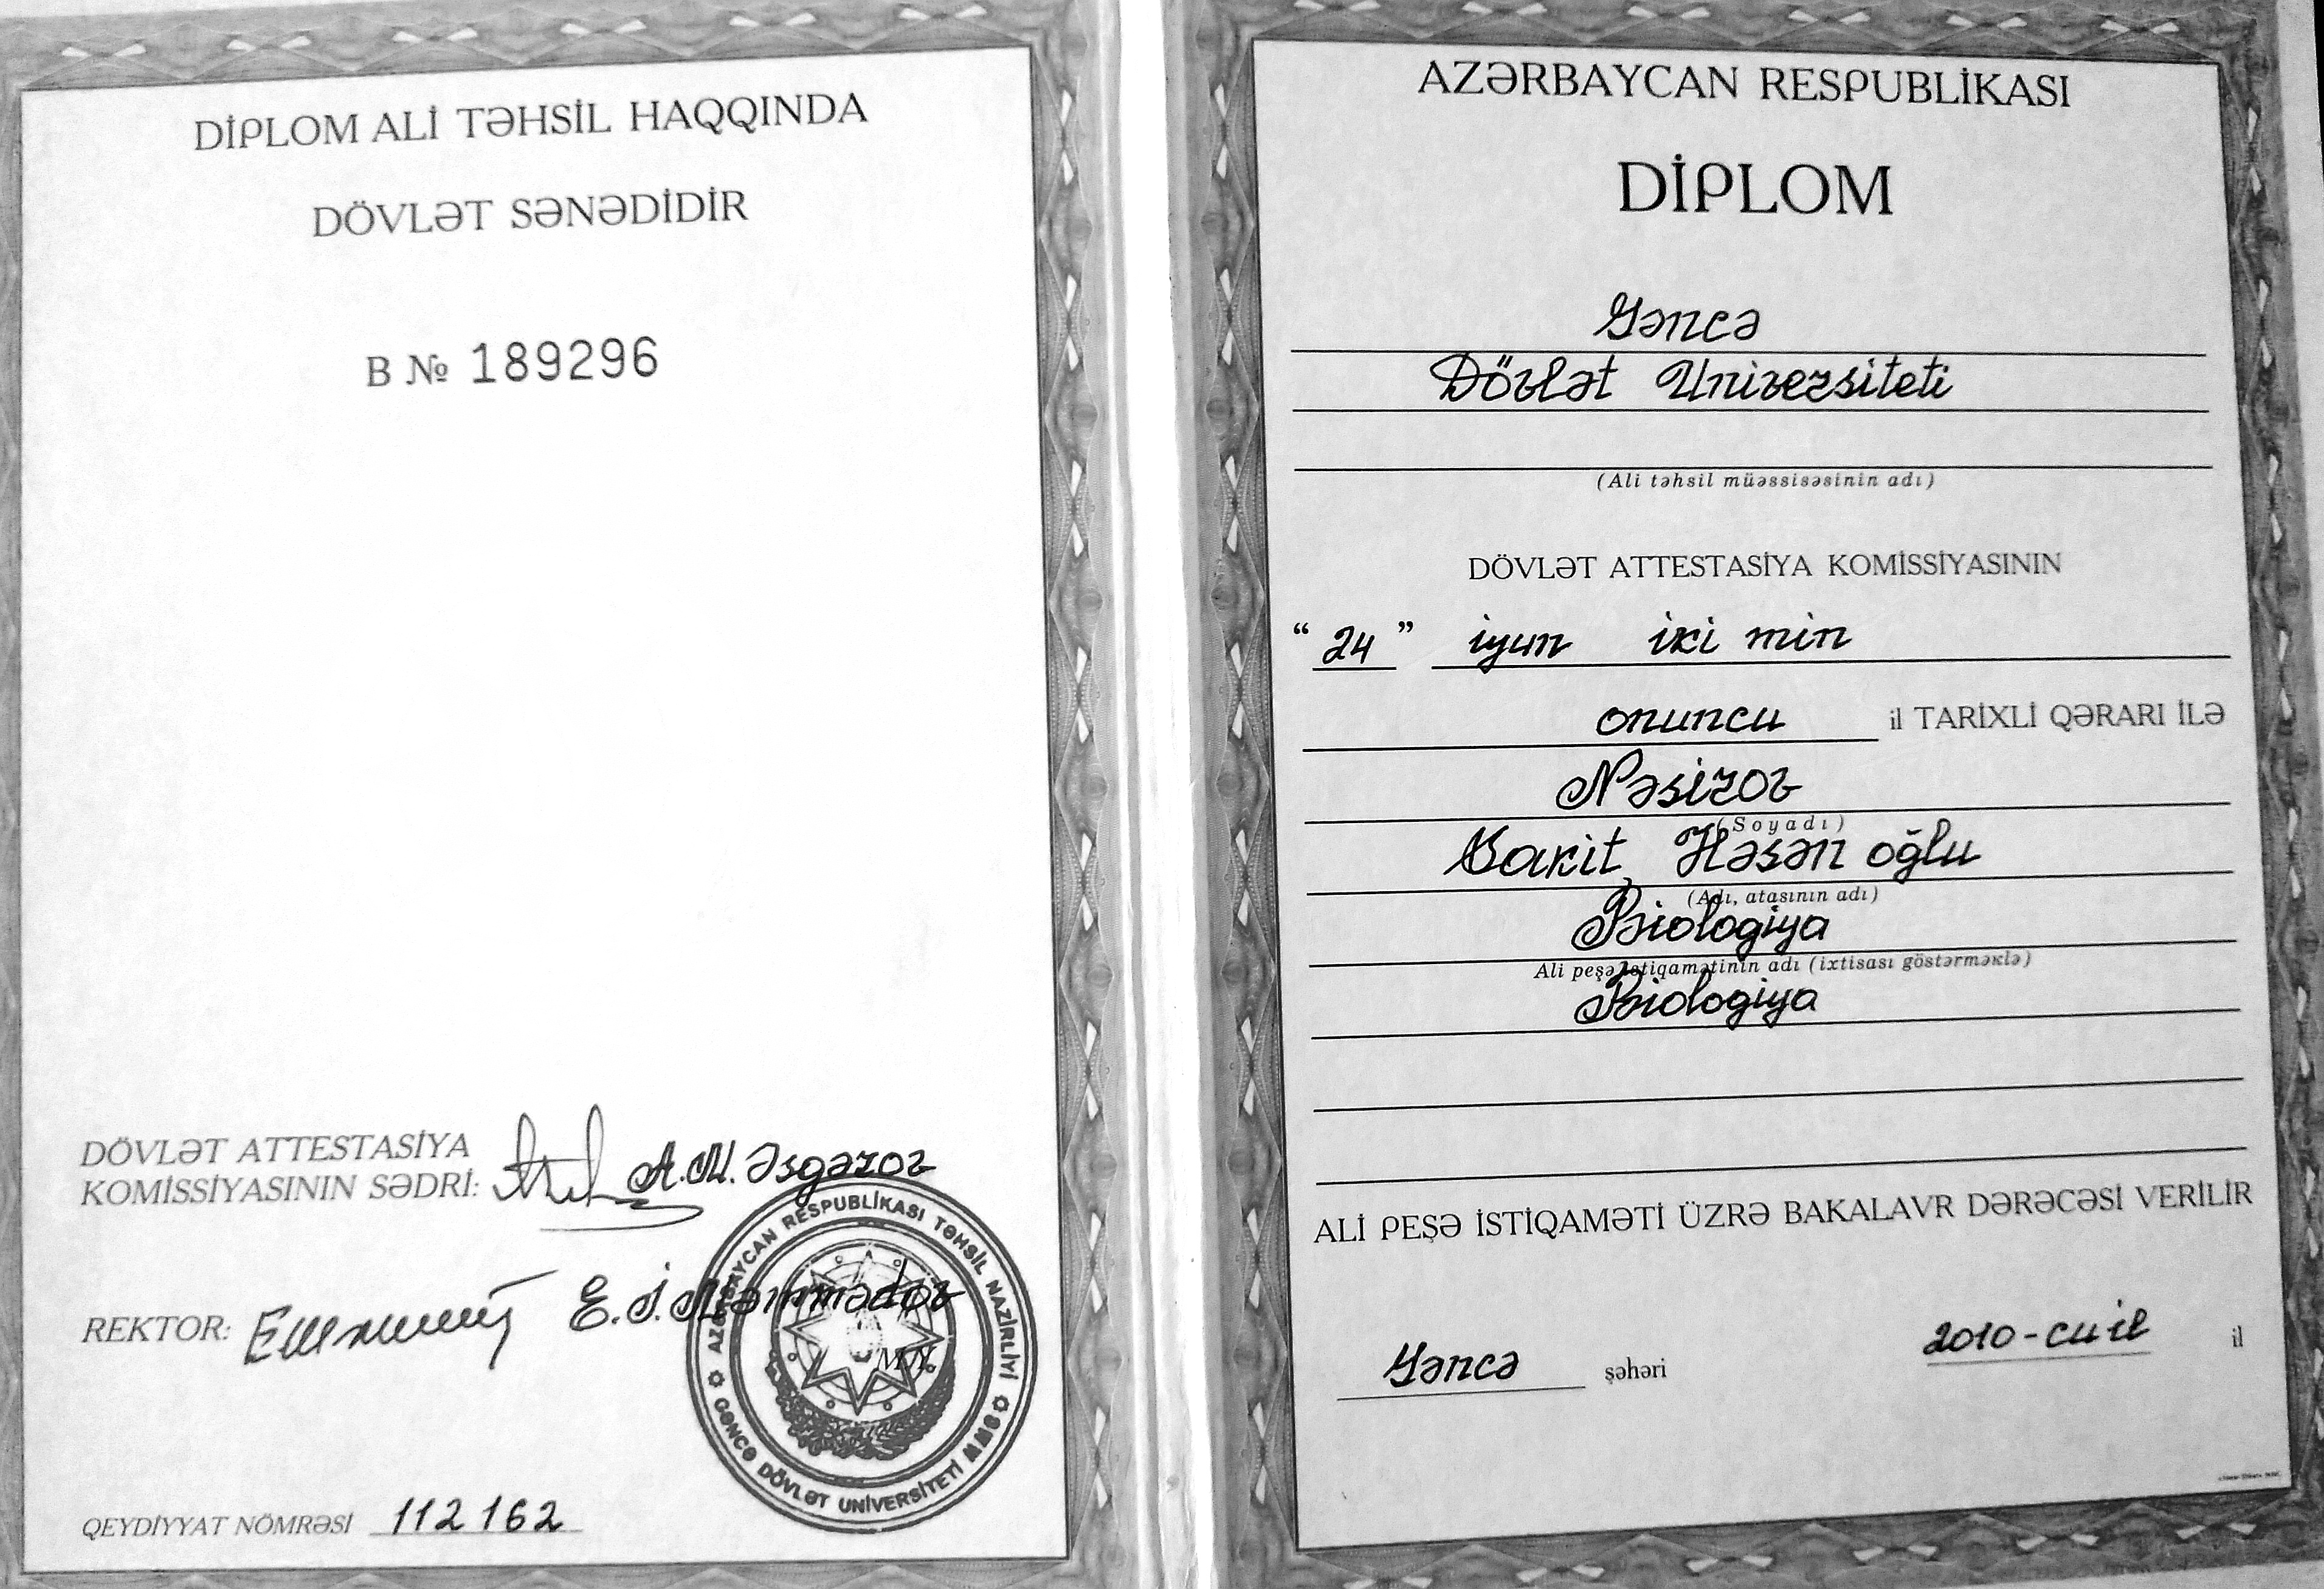 DİPLOM ALİ TƏHSİL HAQQINDA
DÖVLƏT SƏNƏDİDİR
B № 189296
DÖVLƏT ATTESTASİYA
KOMİSSİYASININ SƏDRİ: A.M. Əsgərov
REKTOR: E.İ. Məmmədov
AZƏRBAYCAN RESPUBLİKASI TƏHSİL NAZİRLİYİ
GƏNCƏ DÖVLƏT UNİVERSİTETİ
QEYDİYYAT NÖMRƏSİ 112162
AZƏRBAYCAN RESPUBLİKASI
DİPLOM
Gəncə
Dövlət Universiteti
(Ali təhsil müəssisəsinin adı)
DÖVLƏT ATTESTASİYA KOMİSSİYASININ
“24” iyun iki min
onuncu il TARİXLİ QƏRARI İLƏ
Nəsirov
(Soyadı)
Sakit Həsən oğlu
(Adı, atasının adı)
Biologiya
Ali peşə istiqamətinin adı (ixtisası göstərməklə)
Biologiya
ALİ PEŞƏ İSTİQAMƏTİ ÜZRƏ BAKALAVR DƏRƏCƏSİ VERİLİR
Gəncə şəhəri 2010-cu il il